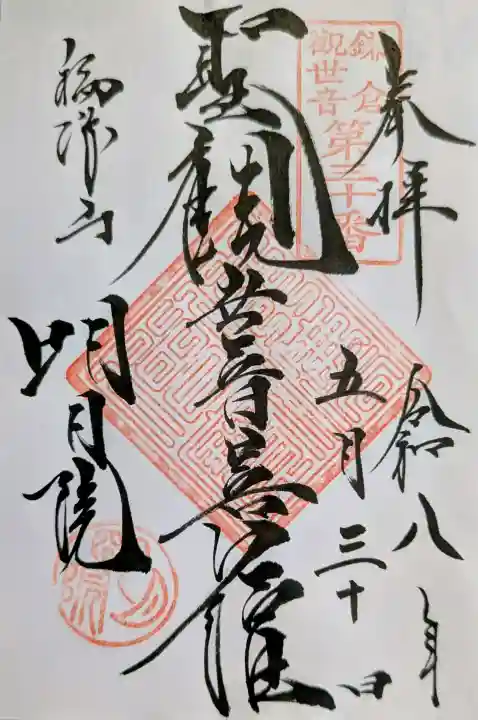 奉拝
令和八年
五月三十日
鎌倉
観世音
第三十番
聖観世音菩薩
福源山
明月院